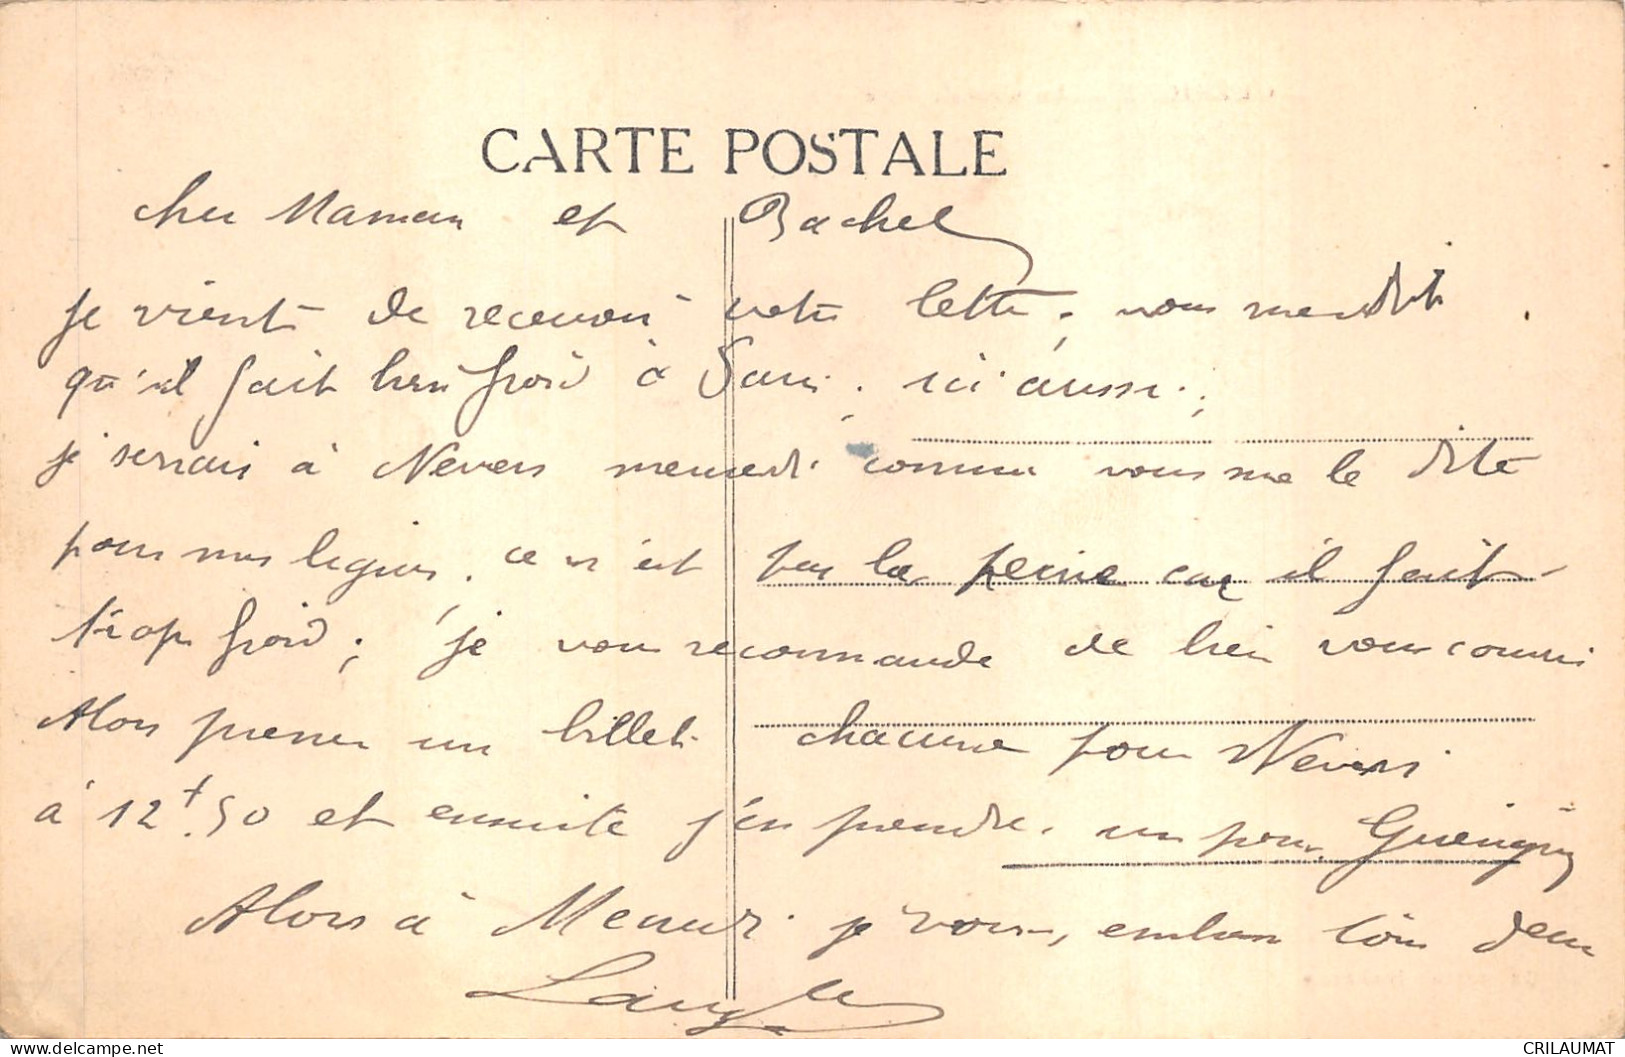 CARTE POSTALE
cher Maman et Rachel
je vient de recevoir votre lettre, vous me dit
qu'il fait bien froid à Paris, ici aussi,
je serrais à Nevers mercredi comme vous me le dite
pour mes . ce n'est pas la peine car il fait
trop froid ; je vous recommande de bien vous couvrir
Alors prener un billet chacune pour Nevers
à 12t.50 et ensuite j'en prendre un pour Guerigny
Alors à Mercredi je vous embrasse tous deux
CRILAUMAT